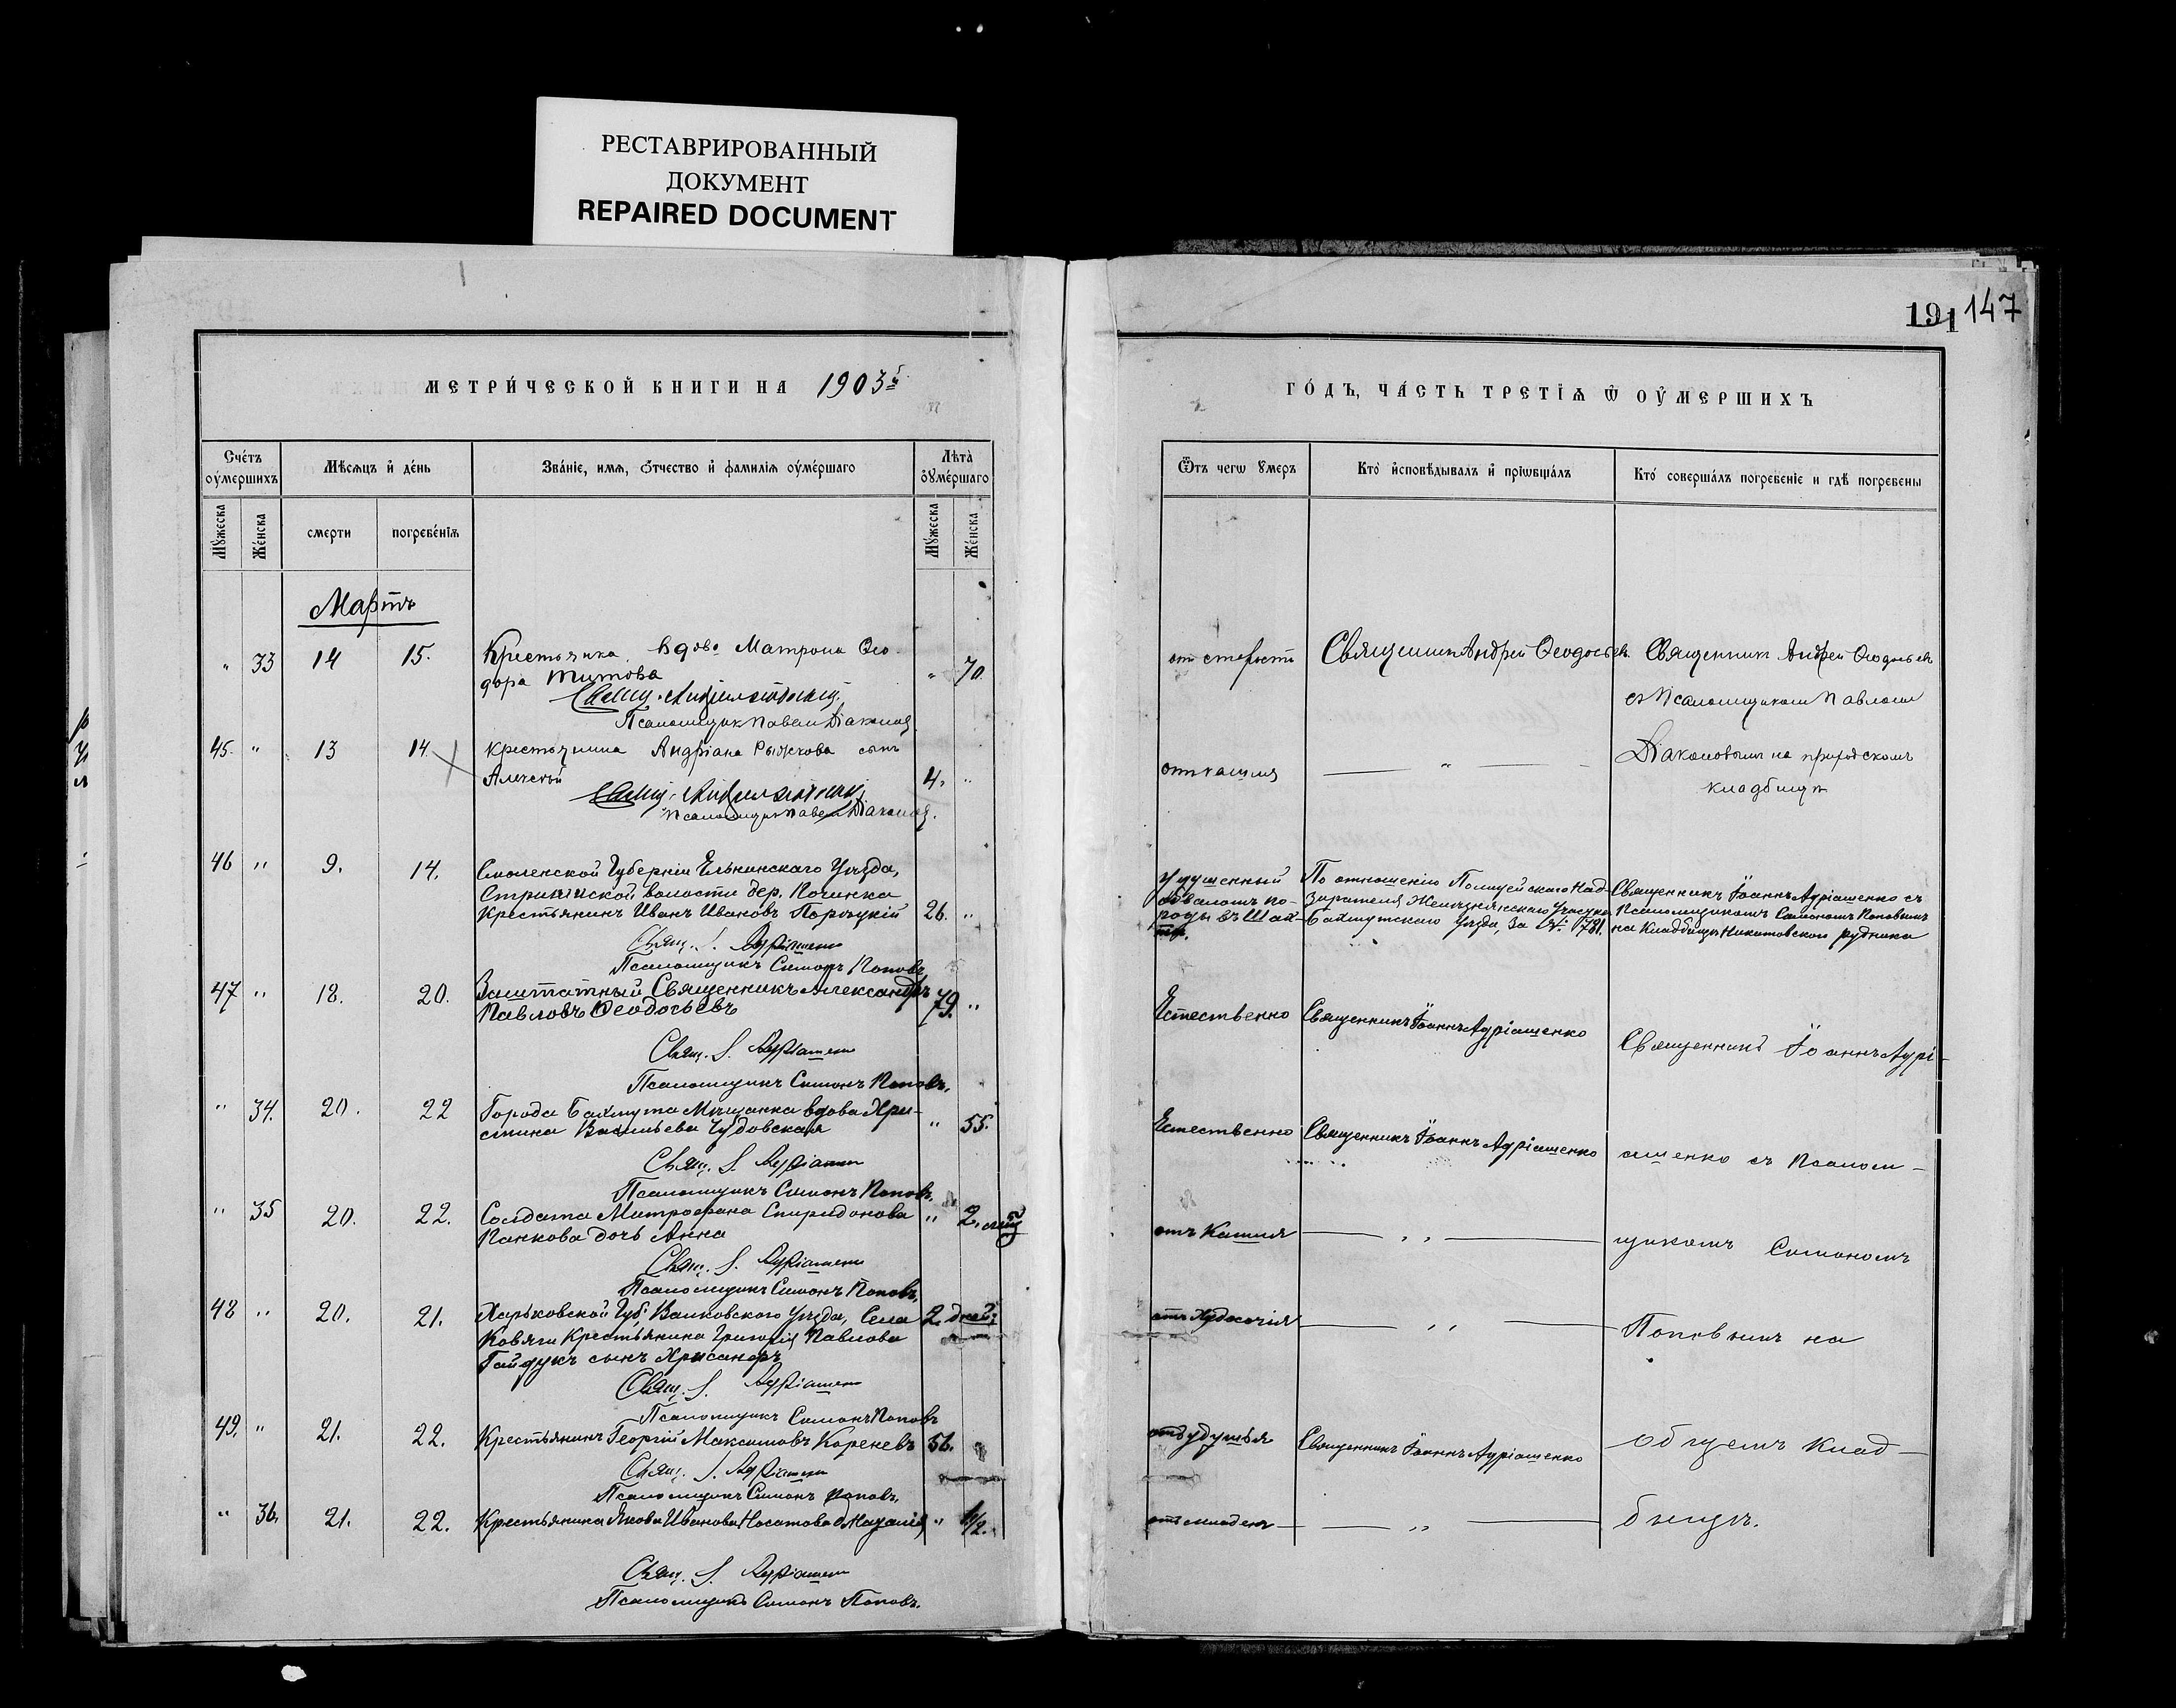 РЕСТАВРИРОВАННЫЙ
ДОКУМЕНТ
REPAIRED DOCUMENT
191 147
МЕТРИ́ЧЕСКОЙ КНИГИ НА 1903й
ГО́ДЪ, ЧА́СТЬ ТРЕТІѦ Ѿ ОУ҆МЕРШИХЪ
Сче́тъ оу҆ме́ршихъ
Мѣсѧцъ и҆ де́нь
Зва́нїе, имѧ, ѻ҆́тчество и҆ фамилїѧ оу҆ме́ршаго
Лѣта̀ оу҆ме́ршаго
Ѿтъ чегѡ ᲂумеръ
Кто̀ и҆сповѣдывалъ и҆ прїѡбща́лъ
Кто́ соверша́лъ погребенїе и гдѣ погребены
Мꙋжеска
Же́нска
смерти
погребе́нїѧ
Мꙋжеска
Же́нска
Мартъ
" 33 14 15. Крестьянка вдова Матрона Ѳео-
дора Титова " 70.
Псаломщик Павел Діаконов
от старости Священник Андрей Ѳеодосьев Священник Андрей Ѳеодосьев
с Псаломщиком Павлом
45. " 13 14. Крестьянина Андріана Рыжкова сынъ
Алексѣй 4. "
Псаломщик Павел Діаконов.
от кашля — " — Діаконовым на приходскомъ
кладбищѣ
46 " 9. 14. Смоленской Губерніи Ельнинскаго Уѣзда,
волости дер. Починка
Крестьянинъ Иванъ Ивановъ Порѣцкій 26. "
Свящ. І. Адріашенко
Псаломщикъ Симонъ Поповъ
Удушенный
обваломъ по-
роды въ Шах-
тѣ.
По отношенію Полицейскаго Над-
зирателя Участка
Бахмутскаго Уѣзда, за № 781.
Священникъ Іоаннъ Адріашенко съ
Псаломщикомъ Симономъ Поповымъ
на Кладбищѣ Никитовскаго рудника
47 " 18. 20. Заштатный Священникъ Александръ
Павловъ Ѳеодосьевъ 79. "
Свящ. І. Адріашенко
Псаломщикъ Симонъ Поповъ.
Естественно Священникъ Іоаннъ Адріашенко Священникъ Іоаннъ Адрі-
" 34. 20. 22 Города Бахмута Мѣщанка вдова Хри-
стина Васильева Чудовская " 55.
Свящ. І. Адріашенко
Псаломщикъ Симонъ Поповъ.
Естественно Священникъ Іоаннъ Адріашенко ашенко съ Псалом-
" 35 20. 22. Солдата Митрофана Спиридонова " 2. мц
Панкова дочь Анна
Свящ. І. Адріашенко
Псаломщикъ Симонъ Поповъ.
отъ Кашля — " — щикомъ Симономъ
48 " 20. 21. Харьковской Губ. Валковскаго Уѣзда, Села 2 дней
Ковяги Крестьянина Григорія Павлова
Гайдукъ сынъ Хрисанфъ
Свящ. І. Адріашенко
Псаломщикъ Симонъ Поповъ
отъ Худосочія — " — Поповымъ на
49. " 21. 22. Крестьянинъ Георгій Максимовъ Кореневъ 56.
Свящ. І. Адріашенко
Псаломщикъ Симонъ Поповъ.
отъ удушья Священникъ Іоаннъ Адріашенко общемъ клад-
" 36. 21. 22. Крестьянина Якова Иванова Носатова " 1/2.
Свящ. І. Адріашенко
Псаломщикъ Симонъ Поповъ.
— " — бищѣ.